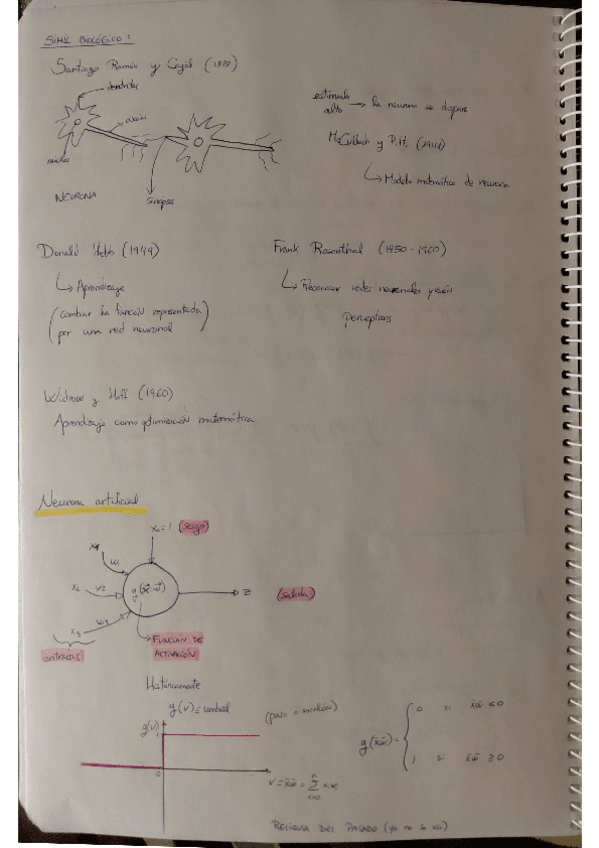 SÍMIL BIOLÓGICO:
Santiago Ramón y Cajal (1888)
dendritas
axón
núcleo
NEURONA
sinapsis
estímulo alto → la neurona se dispara
McCulloch y Pitts (1943)
↳ Modelo matemático de neurona
Donald Hebb (1949)
↳ Aprendizaje
(cambiar la función representada
por una red neuronal)
Frank Rosenthal (1950-1960)
↳ Reconocer redes neuronales
Perceptrons
Widrow y Hoff (1960)
Aprendizaje como optimización matemática
Neurona artificial
x₀=1 (sesgo)
x₁ w₁
x₂ w₂
x₃ w₃
z (salida)
entradas
FUNCIÓN DE
ACTIVACIÓN
Históricamente
g(v) ≡ umbral
(paso o escalón)
g(v)
1
0
g(x̄w̄) = { 0 si x̄w̄ < 0
1 si x̄w̄ ≥ 0
RELIQUIA DEL PASADO (ya no se usa)